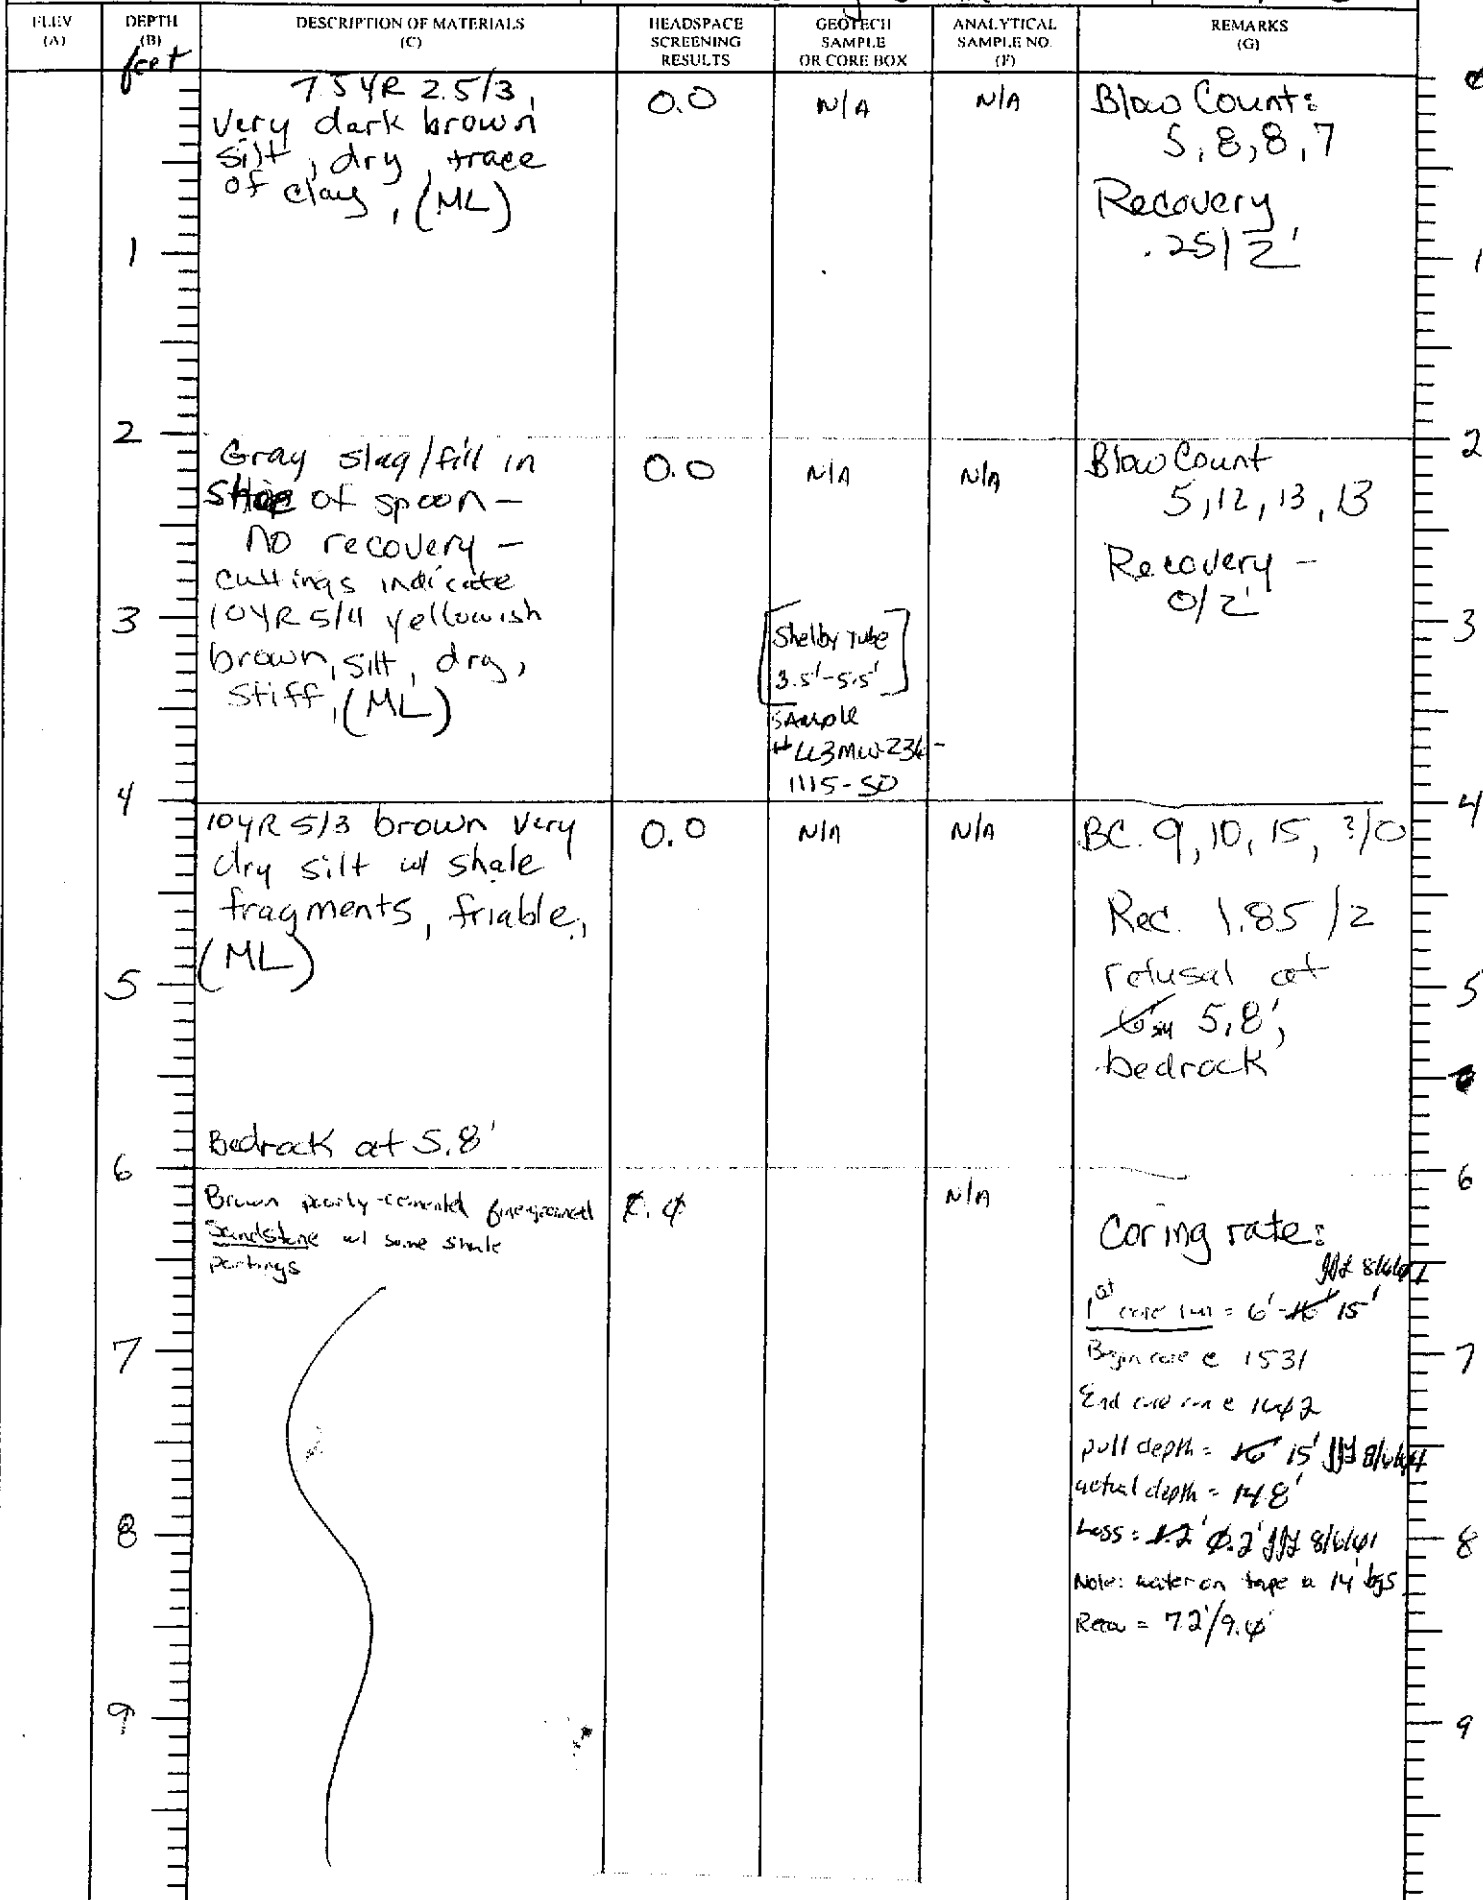 ELEV
(A)
DEPTH
(B)
feet
DESCRIPTION OF MATERIALS
(C)
HEADSPACE
SCREENING
RESULTS
GEOTECH
SAMPLE
OR CORE BOX
ANALYTICAL
SAMPLE NO.
(F)
REMARKS
(G)
7.5YR 2.5/3,
Very dark brown
silt, dry, trace
of clay, (ML)
0.0
N/A
N/A
Blow Count:
5, 8, 8, 7
Recovery
.25/2'
1
1
2
2
Gray slag/fill in
shoe of spoon -
no recovery -
cuttings indicate
10YR 5/4 yellowish
brown, silt, dry,
stiff, (ML)
0.0
N/A
N/A
Shelby Tube
3.5'-5.5'
Sample
1115-SO
Blow Count
5, 12, 13, 13
Recovery -
0/2'
3
3
4
4
10YR 5/3 brown very
dry silt w/ shale
fragments, friable,
(ML)
0.0
N/A
N/A
BC. 9, 10, 15, ?/0
Rec. 1.85/2
refusal at
5.8',
bedrock
5
5
Bedrock at 5.8'
6
6
Brown poorly-cemented fine grained
Sandstone w/ some shale
partings
N/A
Coring rate:
1st core run = 6'- 15'
Begin core @ 1531
End core run @
pull depth = 15'
actual depth = 14.8'
Loss = 0.2'
Note: water on tape @ 14' bgs
= 7.2'/9.0'
7
7
8
8
9
9